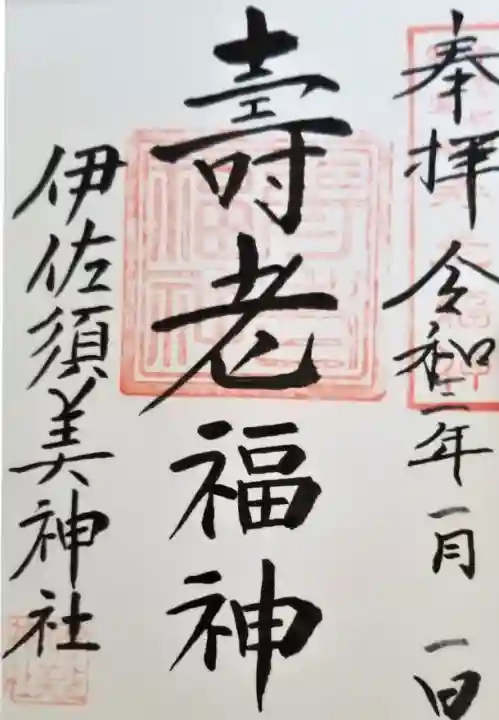 奉拝 令和三年一月一日
壽老福神
伊佐須美神社